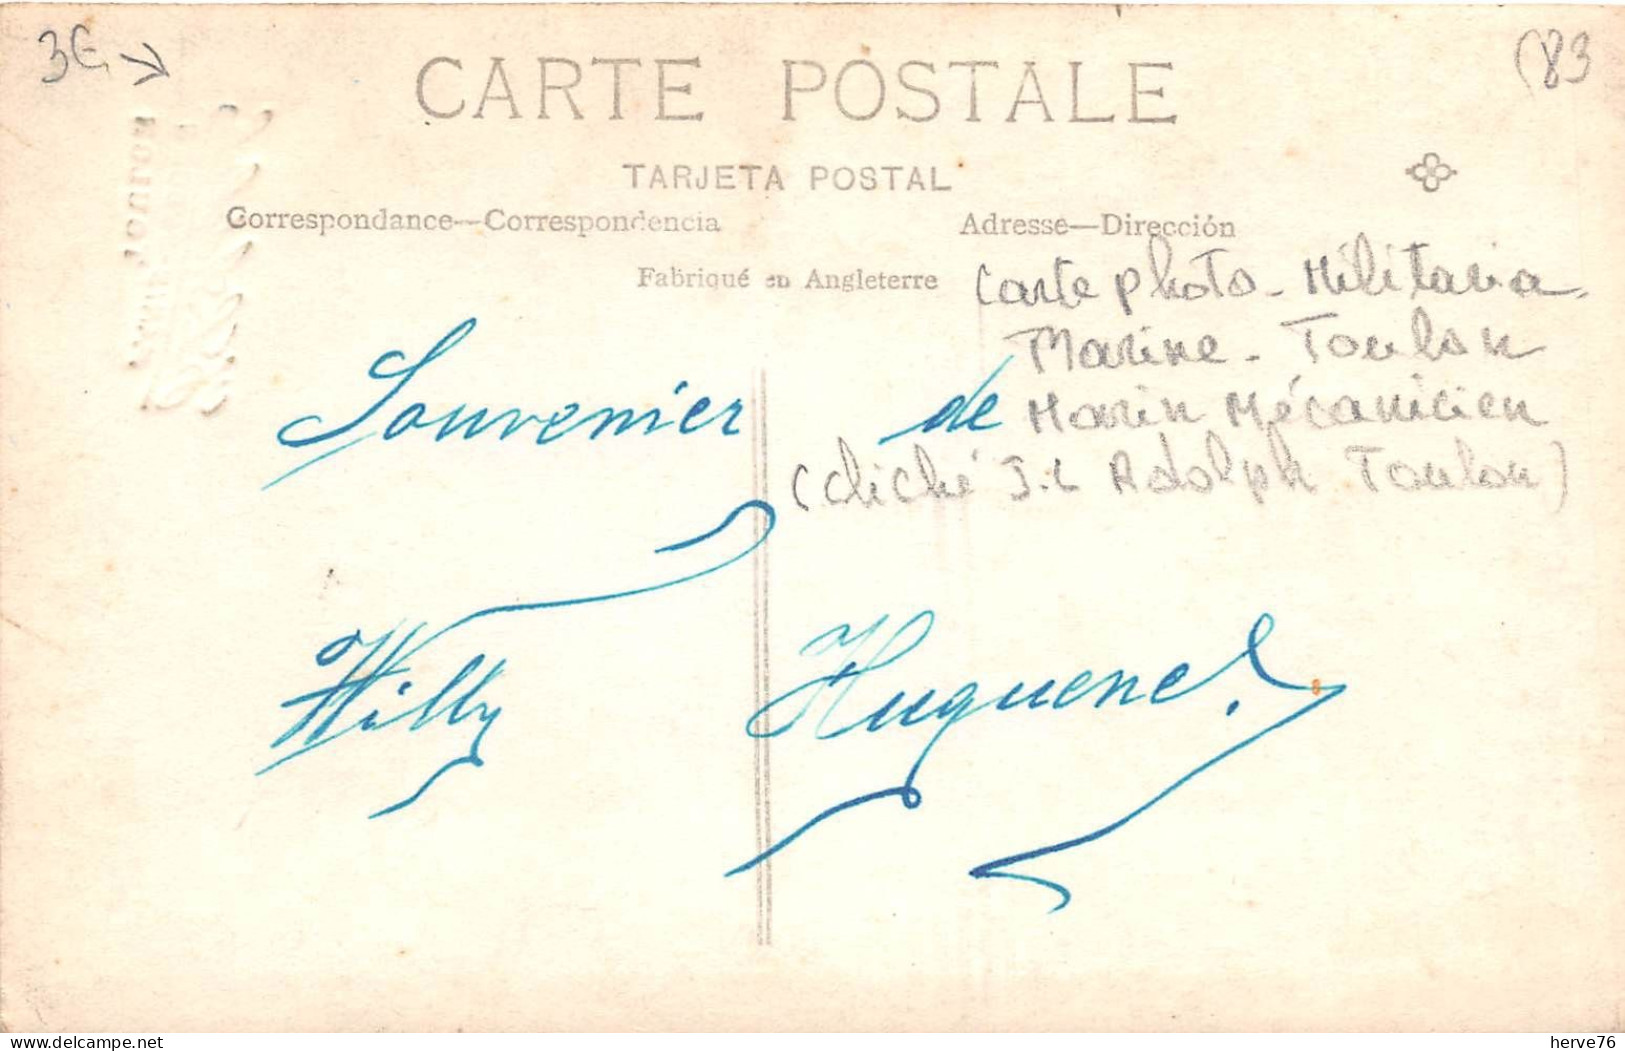 3€ (83
CARTE POSTALE
TARJETA POSTAL
Correspondance—Correspondencia Adresse—Dirección
Fabriqué en Angleterre
Carte photo - Militaria -
Marine - Toulon
Marin Mécanicien
(cliché J.L Adolph Toulon)
Souvenier de
Willy Huguenel.
TOULON
delcampe.net
herve76